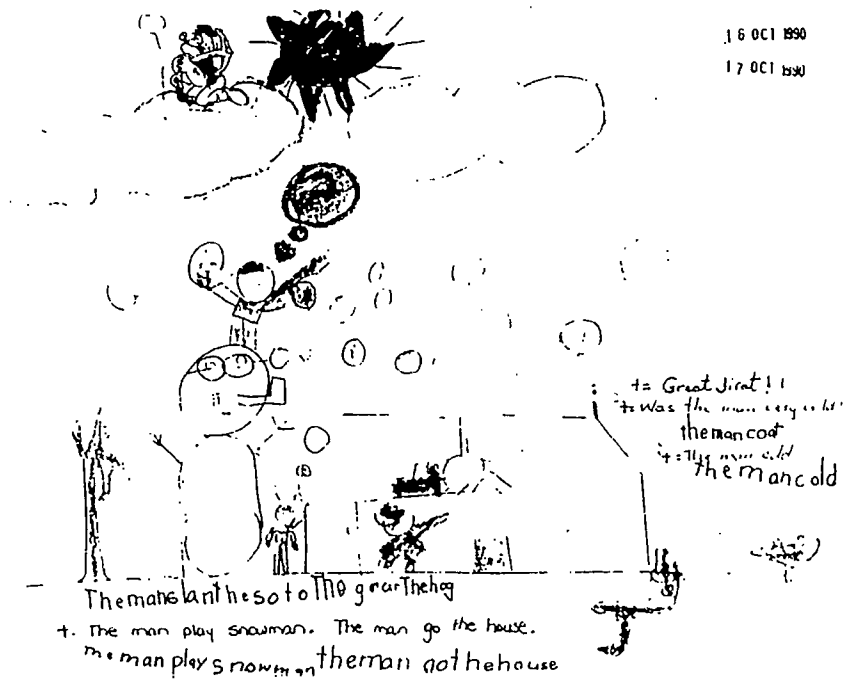 16 OCT 1990
17 OCT 1990
t= Great Jirat!!
t= Was the man very cold?
the man coat
t= The man cold
the man cold
The man slant he so to the grar The hog
t. The man play snowman. The man go the house.
The man play snowman the man not he house